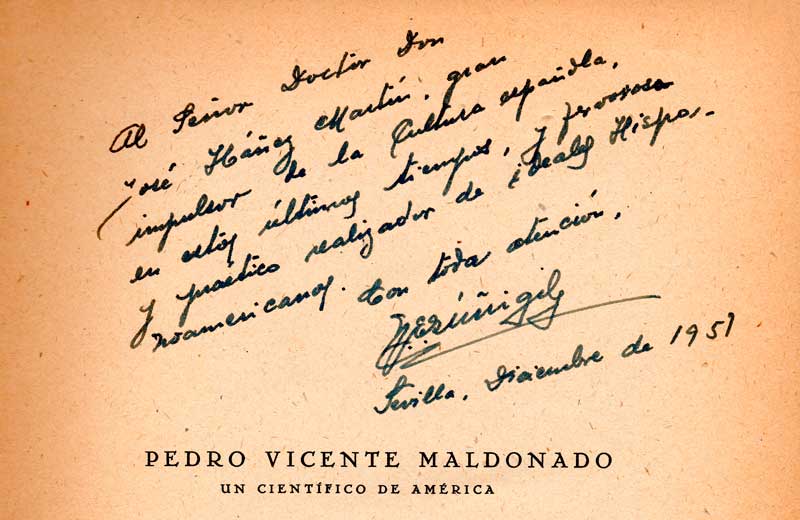 Al Señor Doctor Don
José Ibáñez Martín, gran
impulsor de la Cultura española,
en estos últimos tiempos, y fervoroso
y práctico realizador de ideales Hispa-
noamericanos. Con toda atención,
Sevilla, Diciembre de 1951
PEDRO VICENTE MALDONADO
UN CIENTÍFICO DE AMÉRICA